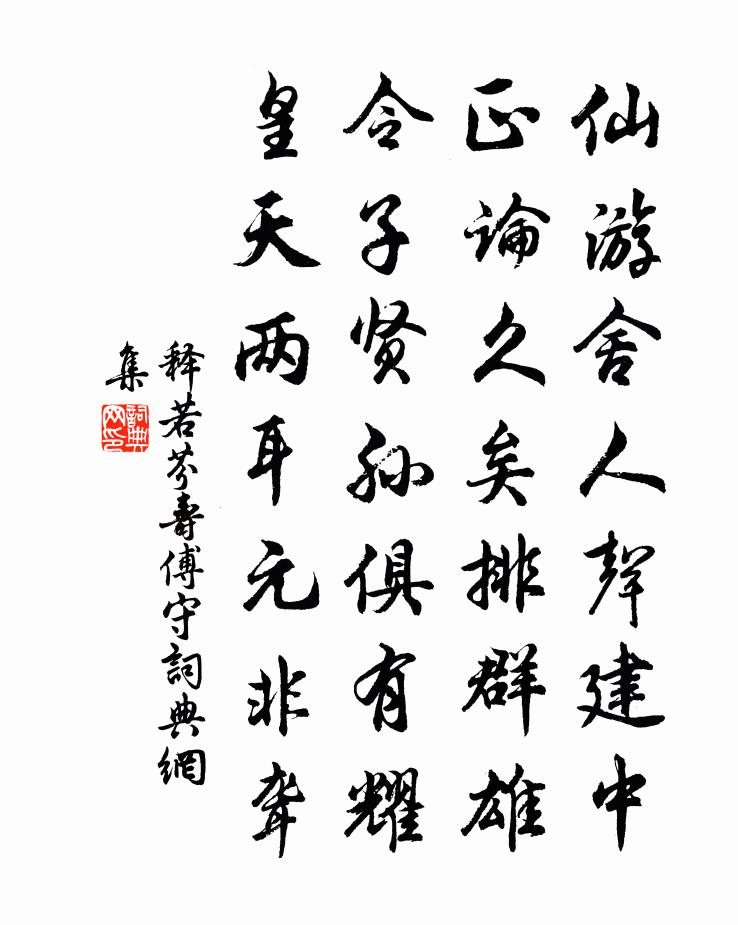 仙游舍人聲建中
正論久矣排群雄
令子贤孙俱有耀
皇天两耳元非聋
释若芬壽傅守詞典網
集
詞典网印